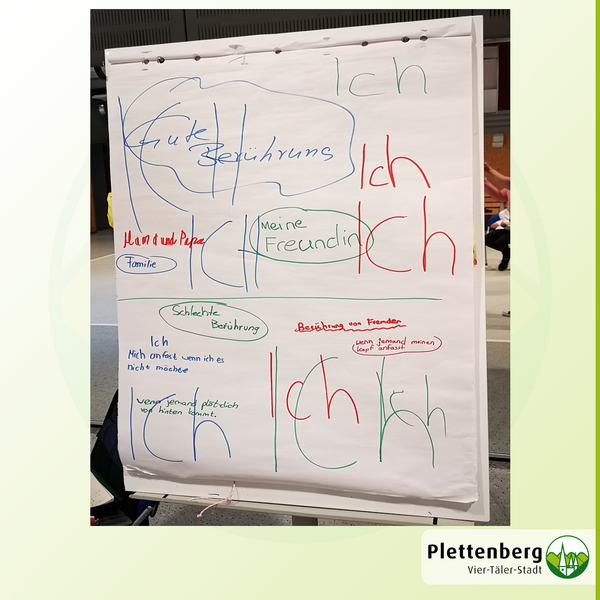 Ich
Gute
Berührung
Ich
Mama und Papa
Familie
ICH
Meine
Freundin
Ich
Schlechte
Berührung
Berührung von Fremden
Wenn jemand meinen
Kopf anfasst
Ich
Mich anfast wenn ich es
nicht möchte
wenn jemand plötzlich
von hinten kommt.
Ich
Ich
Ich
Plettenberg
Vier-Täler-Stadt